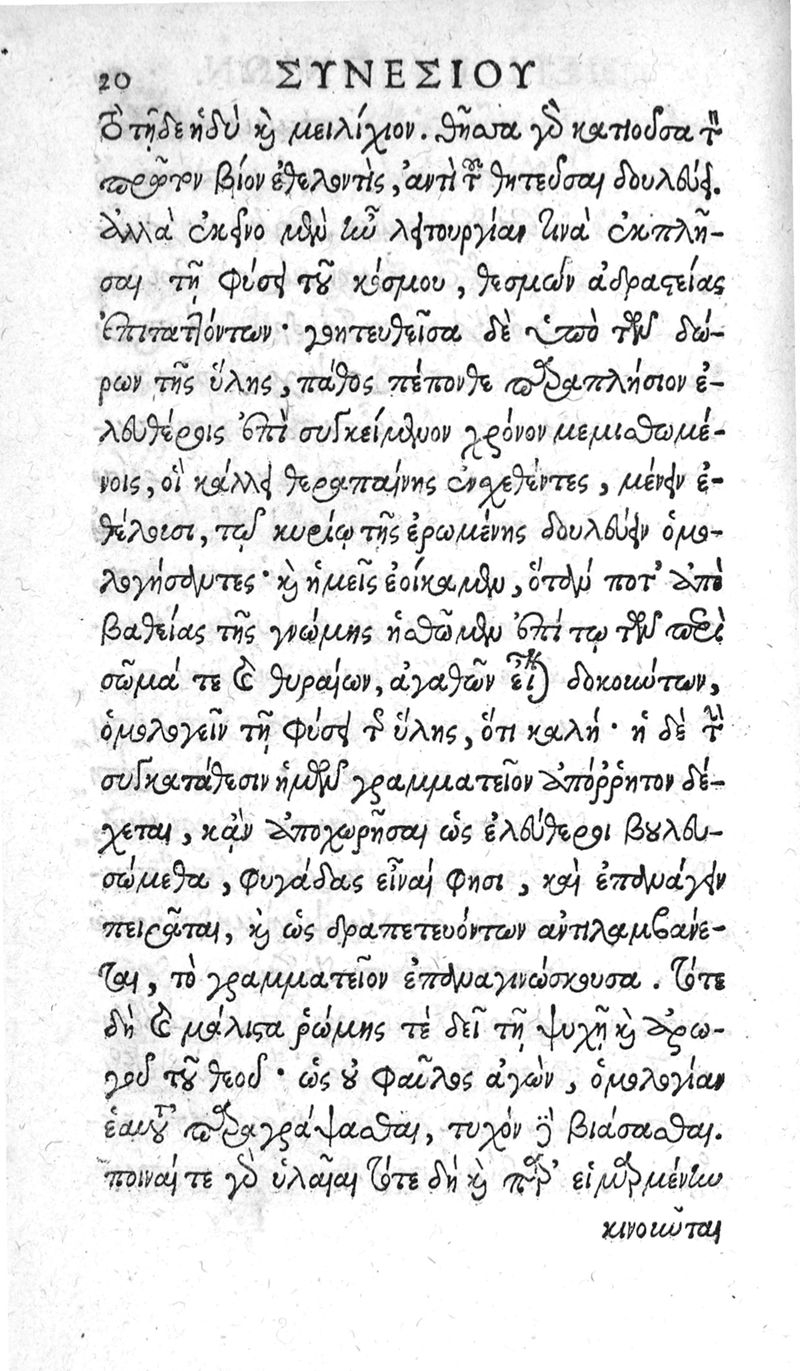 20 ΣΥΝΕΣΙΟΥ
τὸ τῇδε ἡδὺ καὶ μειλίχιον. θῆσσα γὰρ κατιοῦσα τὸν
πρῶτον βίον ἐθελοντὴς, ἀντὶ τοῦ θητεῦσαι δουλεύει.
ἀλλὰ ἐκεῖνο μὲν ἦν λειτουργίαν τινὰ ἐκπλῆ-
σαι τῇ φύσει τοῦ κόσμου, θεσμῶν ἀδραστείας
ἐπιταττόντων· γοητευθεῖσα δὲ ὑπὸ τῶν δώ-
ρων τῆς ὕλης, πάθος πέπονθε παραπλήσιον ἐ-
λευθέροις ἐπὶ συγκείμενον χρόνον μεμισθωμέ-
νοις, οἳ κάλλει θεραπαίνης ἐνσχεθέντες, μένειν ἐ-
θέλουσι, τῷ κυρίῳ τῆς ἐρωμένης δουλεύειν ὁμο-
λογήσαντες· καὶ ἡμεῖς ἐοίκαμεν, ὅταν ποτ' ἀπὸ
βαθείας τῆς γνώμης ἡσθῶμεν ἐπί τῳ τῶν περὶ
σῶμά τε καὶ θυραίων, ἀγαθῶν εἶναι δοκούντων,
ὁμολογεῖν τῇ φύσει τῆς ὕλης, ὅτι καλή· ἡ δὲ τὴν
συγκατάθεσιν ἡμῶν γραμματεῖον ἀπόῤῥητον δέ-
χεται, κἂν ἀποχωρῆσαι ὡς ἐλεύθεροι βουλευ-
σώμεθα, φυγάδας εἶναί φησι, καὶ ἐπανάγειν
πειρᾶται, καὶ ὡς δραπετευόντων ἀντιλαμβάνε-
ται, τὸ γραμματεῖον ἐπαναγινώσκουσα. τότε
δὴ καὶ μάλιστα ῥώμης τὲ δεῖ τῇ ψυχῇ καὶ ἀρω-
γοῦ τοῦ θεοῦ· ὡς οὐ φαῦλος ἀγὼν, ὁμολογίαν
ἑαυτοῦ παραγράψασθαι, τυχὸν δὲ βιάσασθαι.
ποιναί τε γὰρ ὑλαῖαι τότε δὴ καὶ παρ' εἱμαρμένην
κινοῦνται